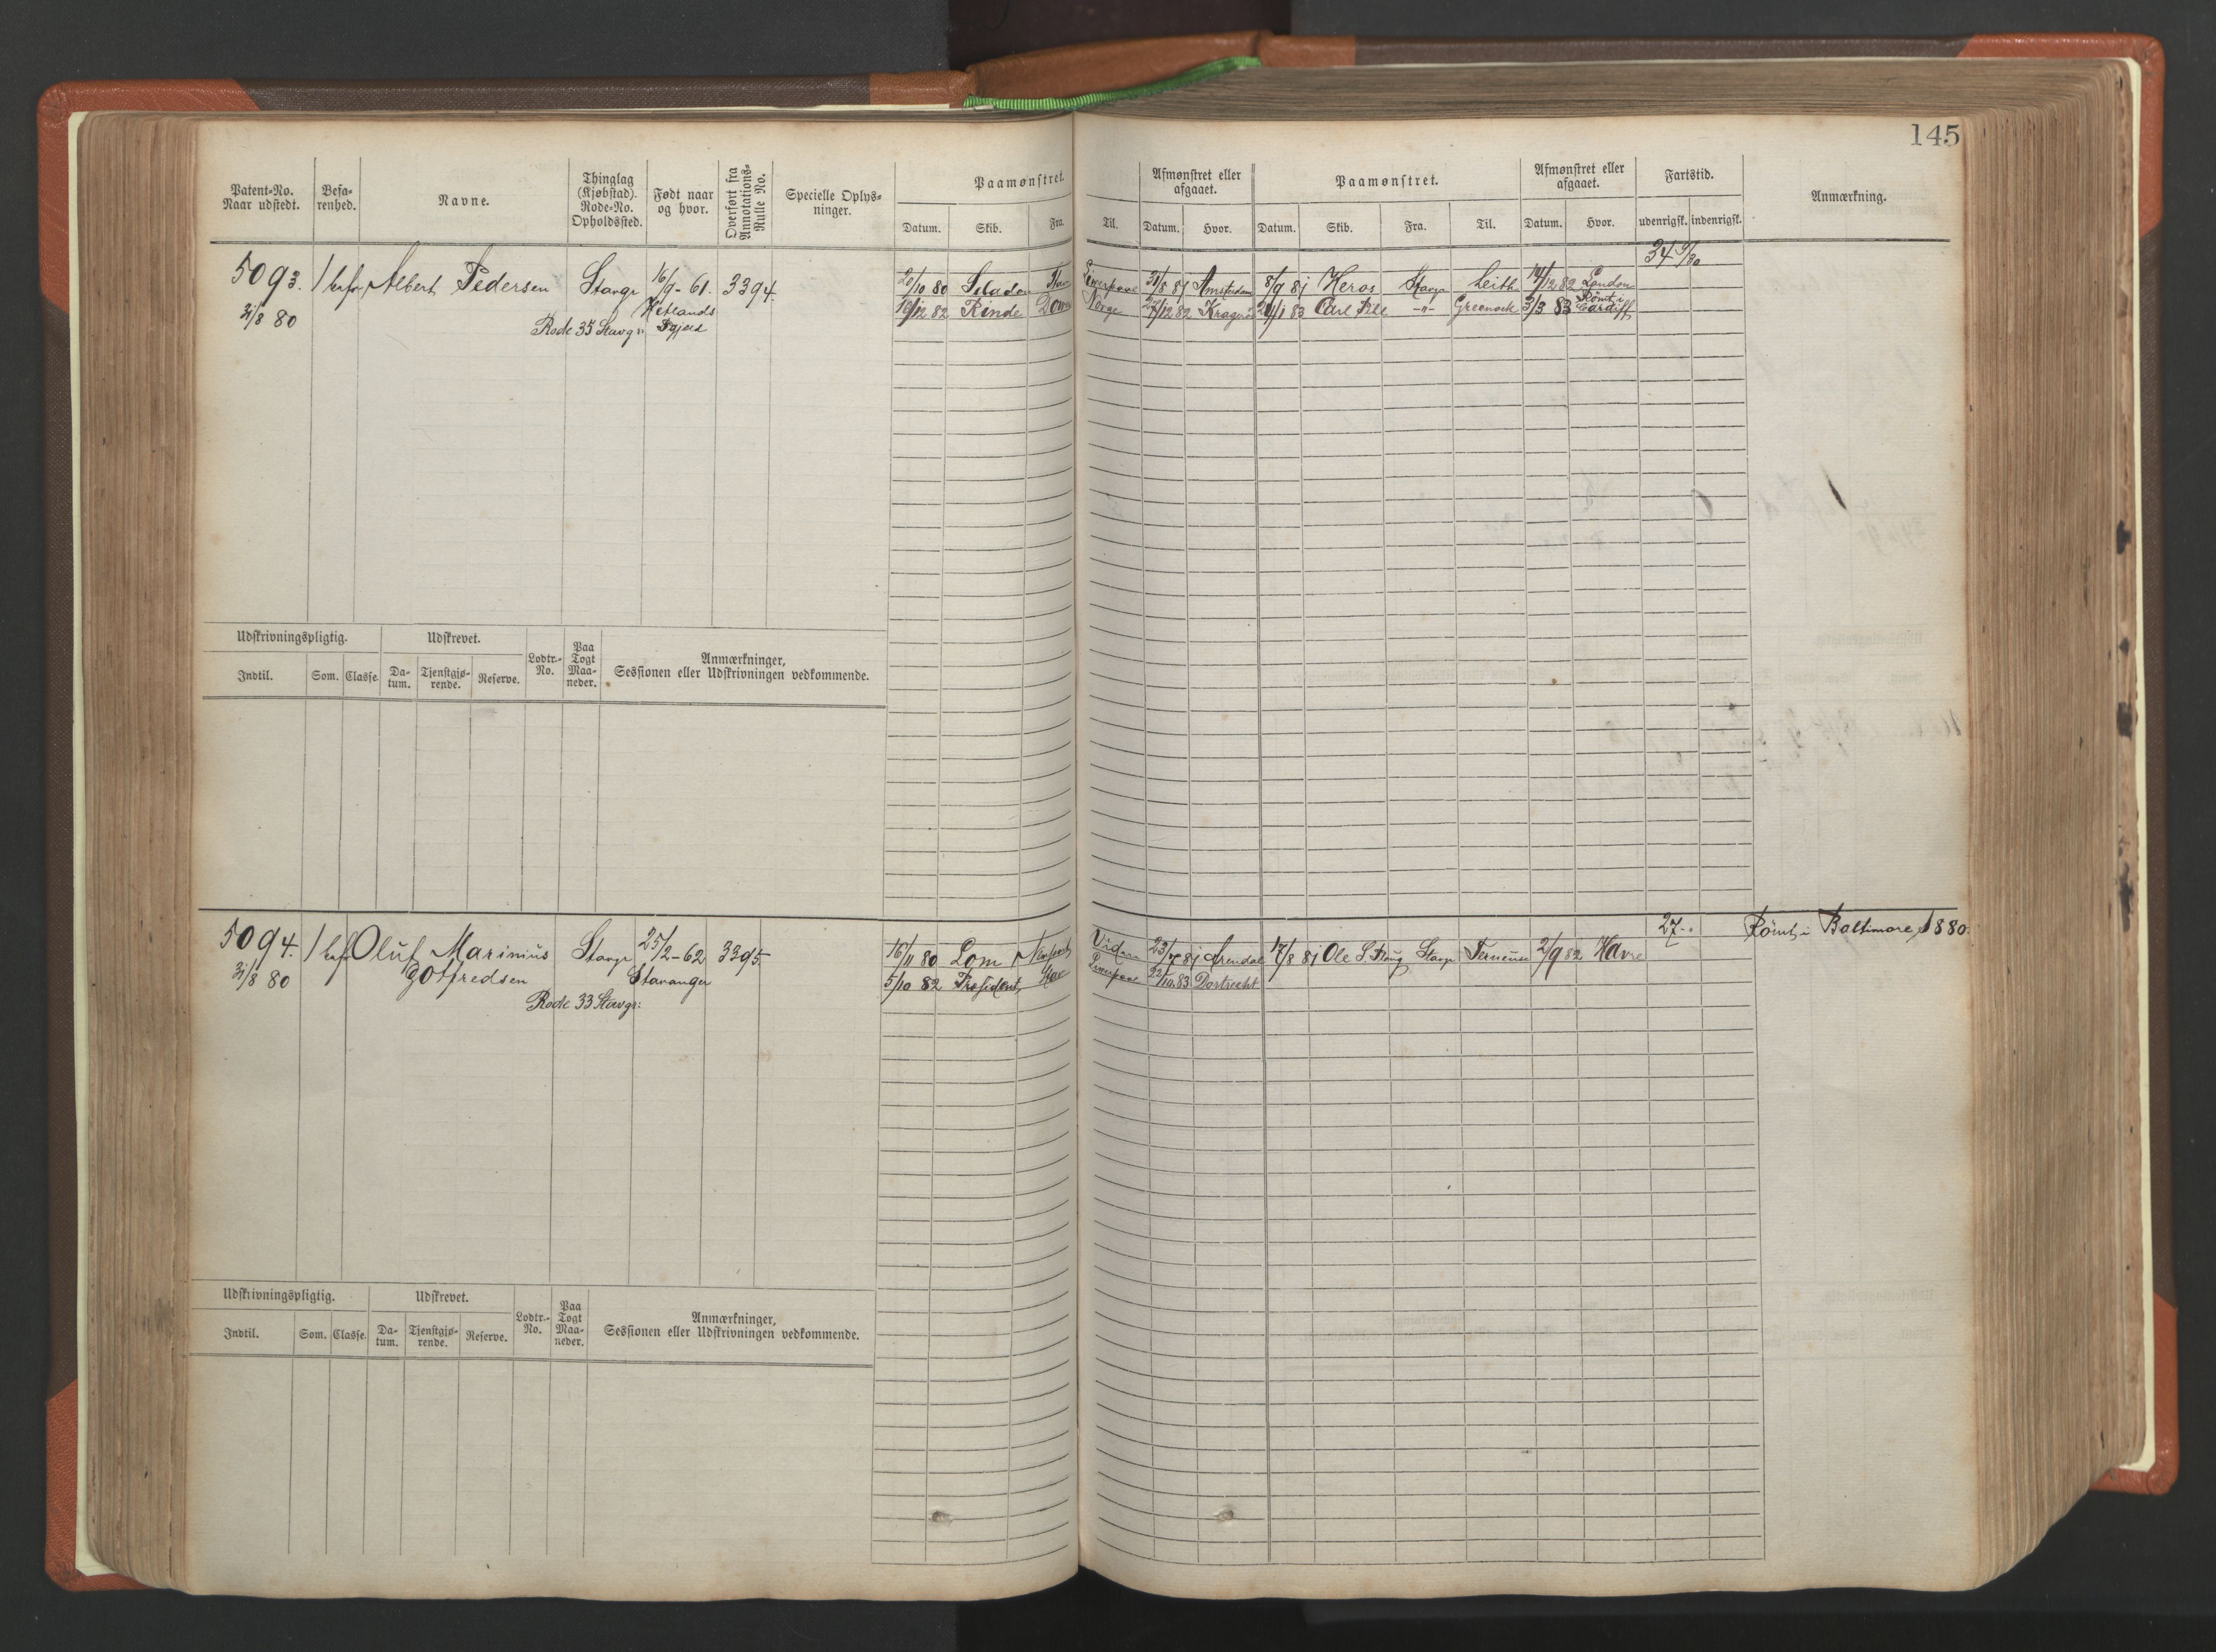 145
Patent-No. Naar udstedt. Befa-renhed. Navne. Thinglag (Kjøbstad). Rode-No. Opholdssted. Født naar og hvor. Overført fra Annotations-Rulle No. Specielle Oplys-ninger. Paamønstret. Afmønstret eller afgaaet. Paamønstret. Afmønstret eller afgaaet. Fartstid. Anmærkning.
Datum. Skib. Fra. Til. Datum. Hvor. Datum. Skib. Fra. Til. Datum. Hvor. udenrigsk. indenrigsk.
34 9/30
5093. 1 bef. Albert Pedersen Stavgr 16/9-61. 3394. 20/10 80 Liverpool 31/8 81 Amsterdam 8/9 81 Heros Stavgr Leith 14/12 82 London
31/8 80 Rode 35 Stavgr: Hetlands 19/12 82 Rinde Norge 27/12 82 Kragerø 20/1 83 Carl -"- Greenock 3/3 83 Rømt i Cardiff
Udskrivningspligtig. Udskrevet. Lodtr.-No. Paa Togt Maa-neder. Anmærkninger, Sessionen eller Udskrivningen vedkommende.
Indtil. Som. Classe. Da-tum. Tjenstgjø-rende. Reserve.
27..
5094. 1 bef. Oluf Marinius Stavgr 25/2-62 3395. 16/11 80 Lom 81 Arendal 17/8 81 Ole Stavgr 2/9 82 Havre Rømt i Baltimore 1880.
31/8 80 Gotfredsen Stavanger 5/10 82 President, Liverpool 22/10 83 Dortrecht
Rode 33 Stavgr:
Udskrivningspligtig. Udskrevet. Lodtr.-No. Paa Togt Maa-neder. Anmærkninger, Sessionen eller Udskrivningen vedkommende.
Indtil. Som. Classe. Da-tum. Tjenstgjø-rende. Reserve.